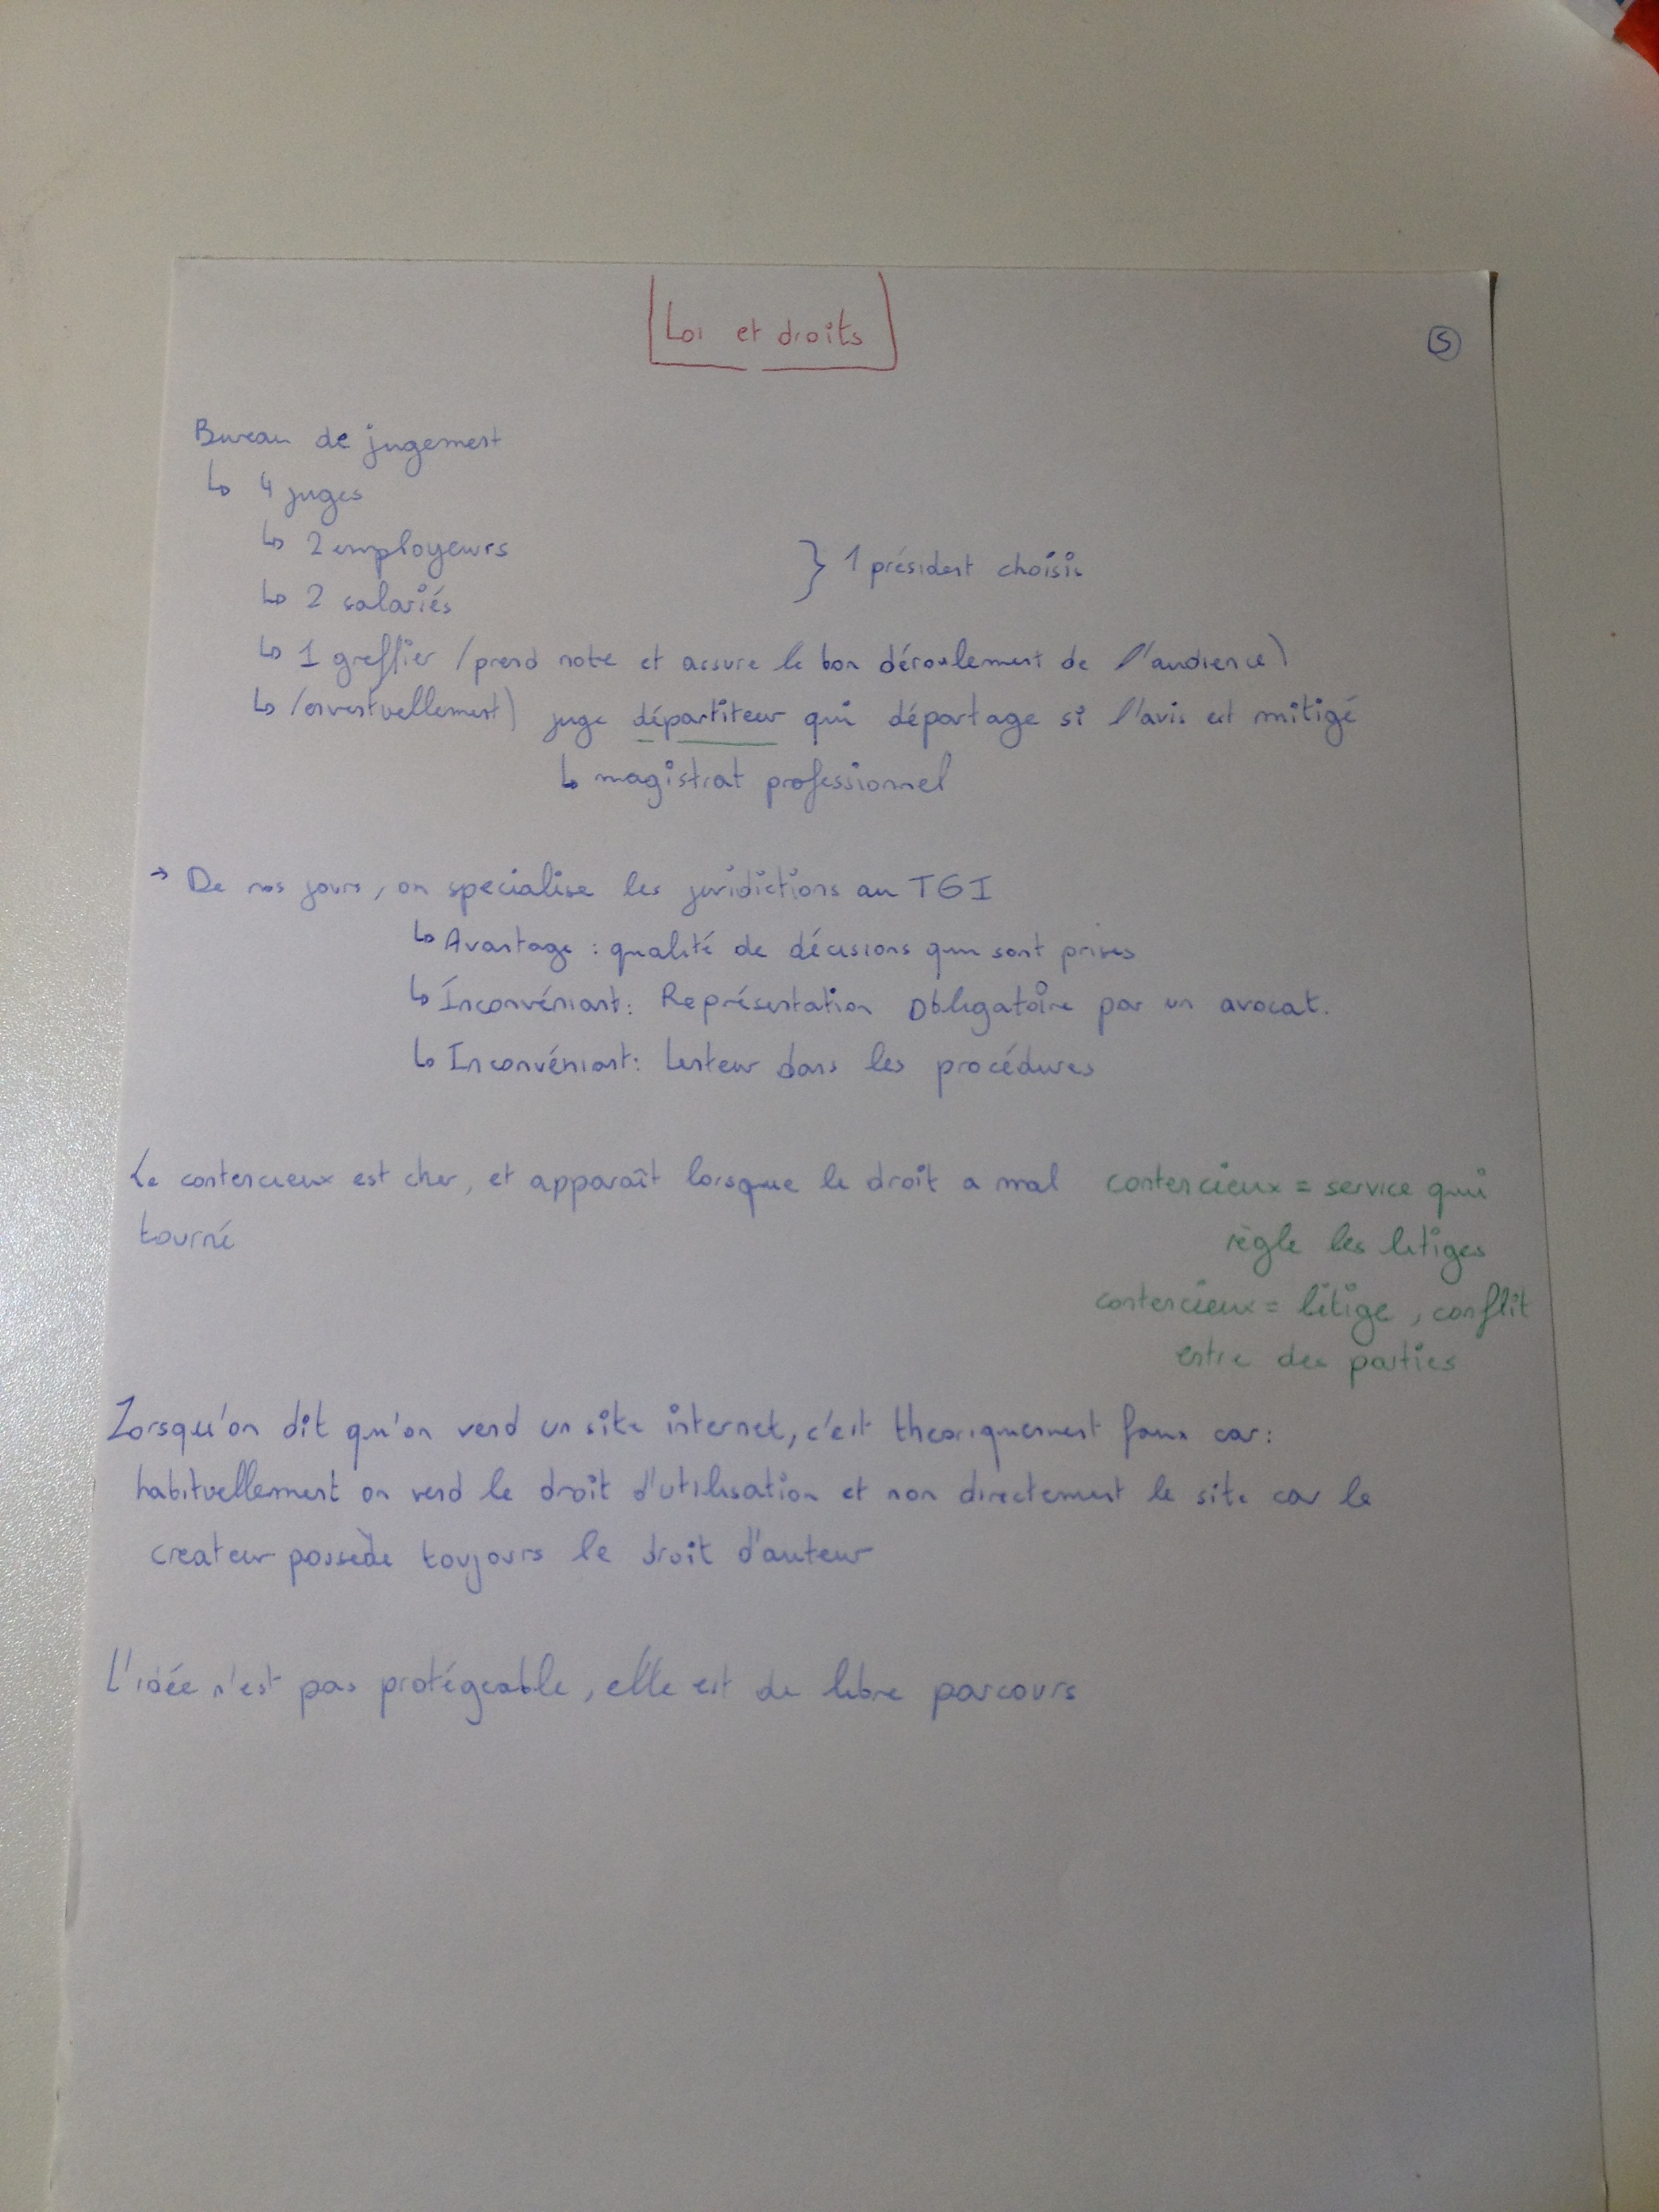 Loi et droits
5
Bureau de jugement
↳ 4 juges
↳ 2 employeurs
} 1 président choisis
↳ 2 salariés
↳ 1 greffier (prend note et assure le bon déroulement de l'audience)
↳ (enventuellement) juge départiteur qui départage si l'avis est mitigé
↳ magistrat professionnel
→ De nos jours, on specialise les juridictions au TGI
↳ Avantage : qualité de décisions qui sont prises
↳ Inconvéniant : Représentation Obligatoire par un avocat.
↳ Inconvéniant : Lenteur dans les procédures
Le contencieux est cher, et apparaît lorsque le droit a mal
tourné
contencieux = service qui
règle les litiges
contencieux = litige, conflit
entre des parties
Lorsqu'on dit qu'on vend un site internet, c'est theoriquement faux car :
habituellement on vend le droit d'utilisation et non directement le site car le
createur possède toujours le droit d'auteur
L'idée n'est pas protégeable, elle est de libre parcours